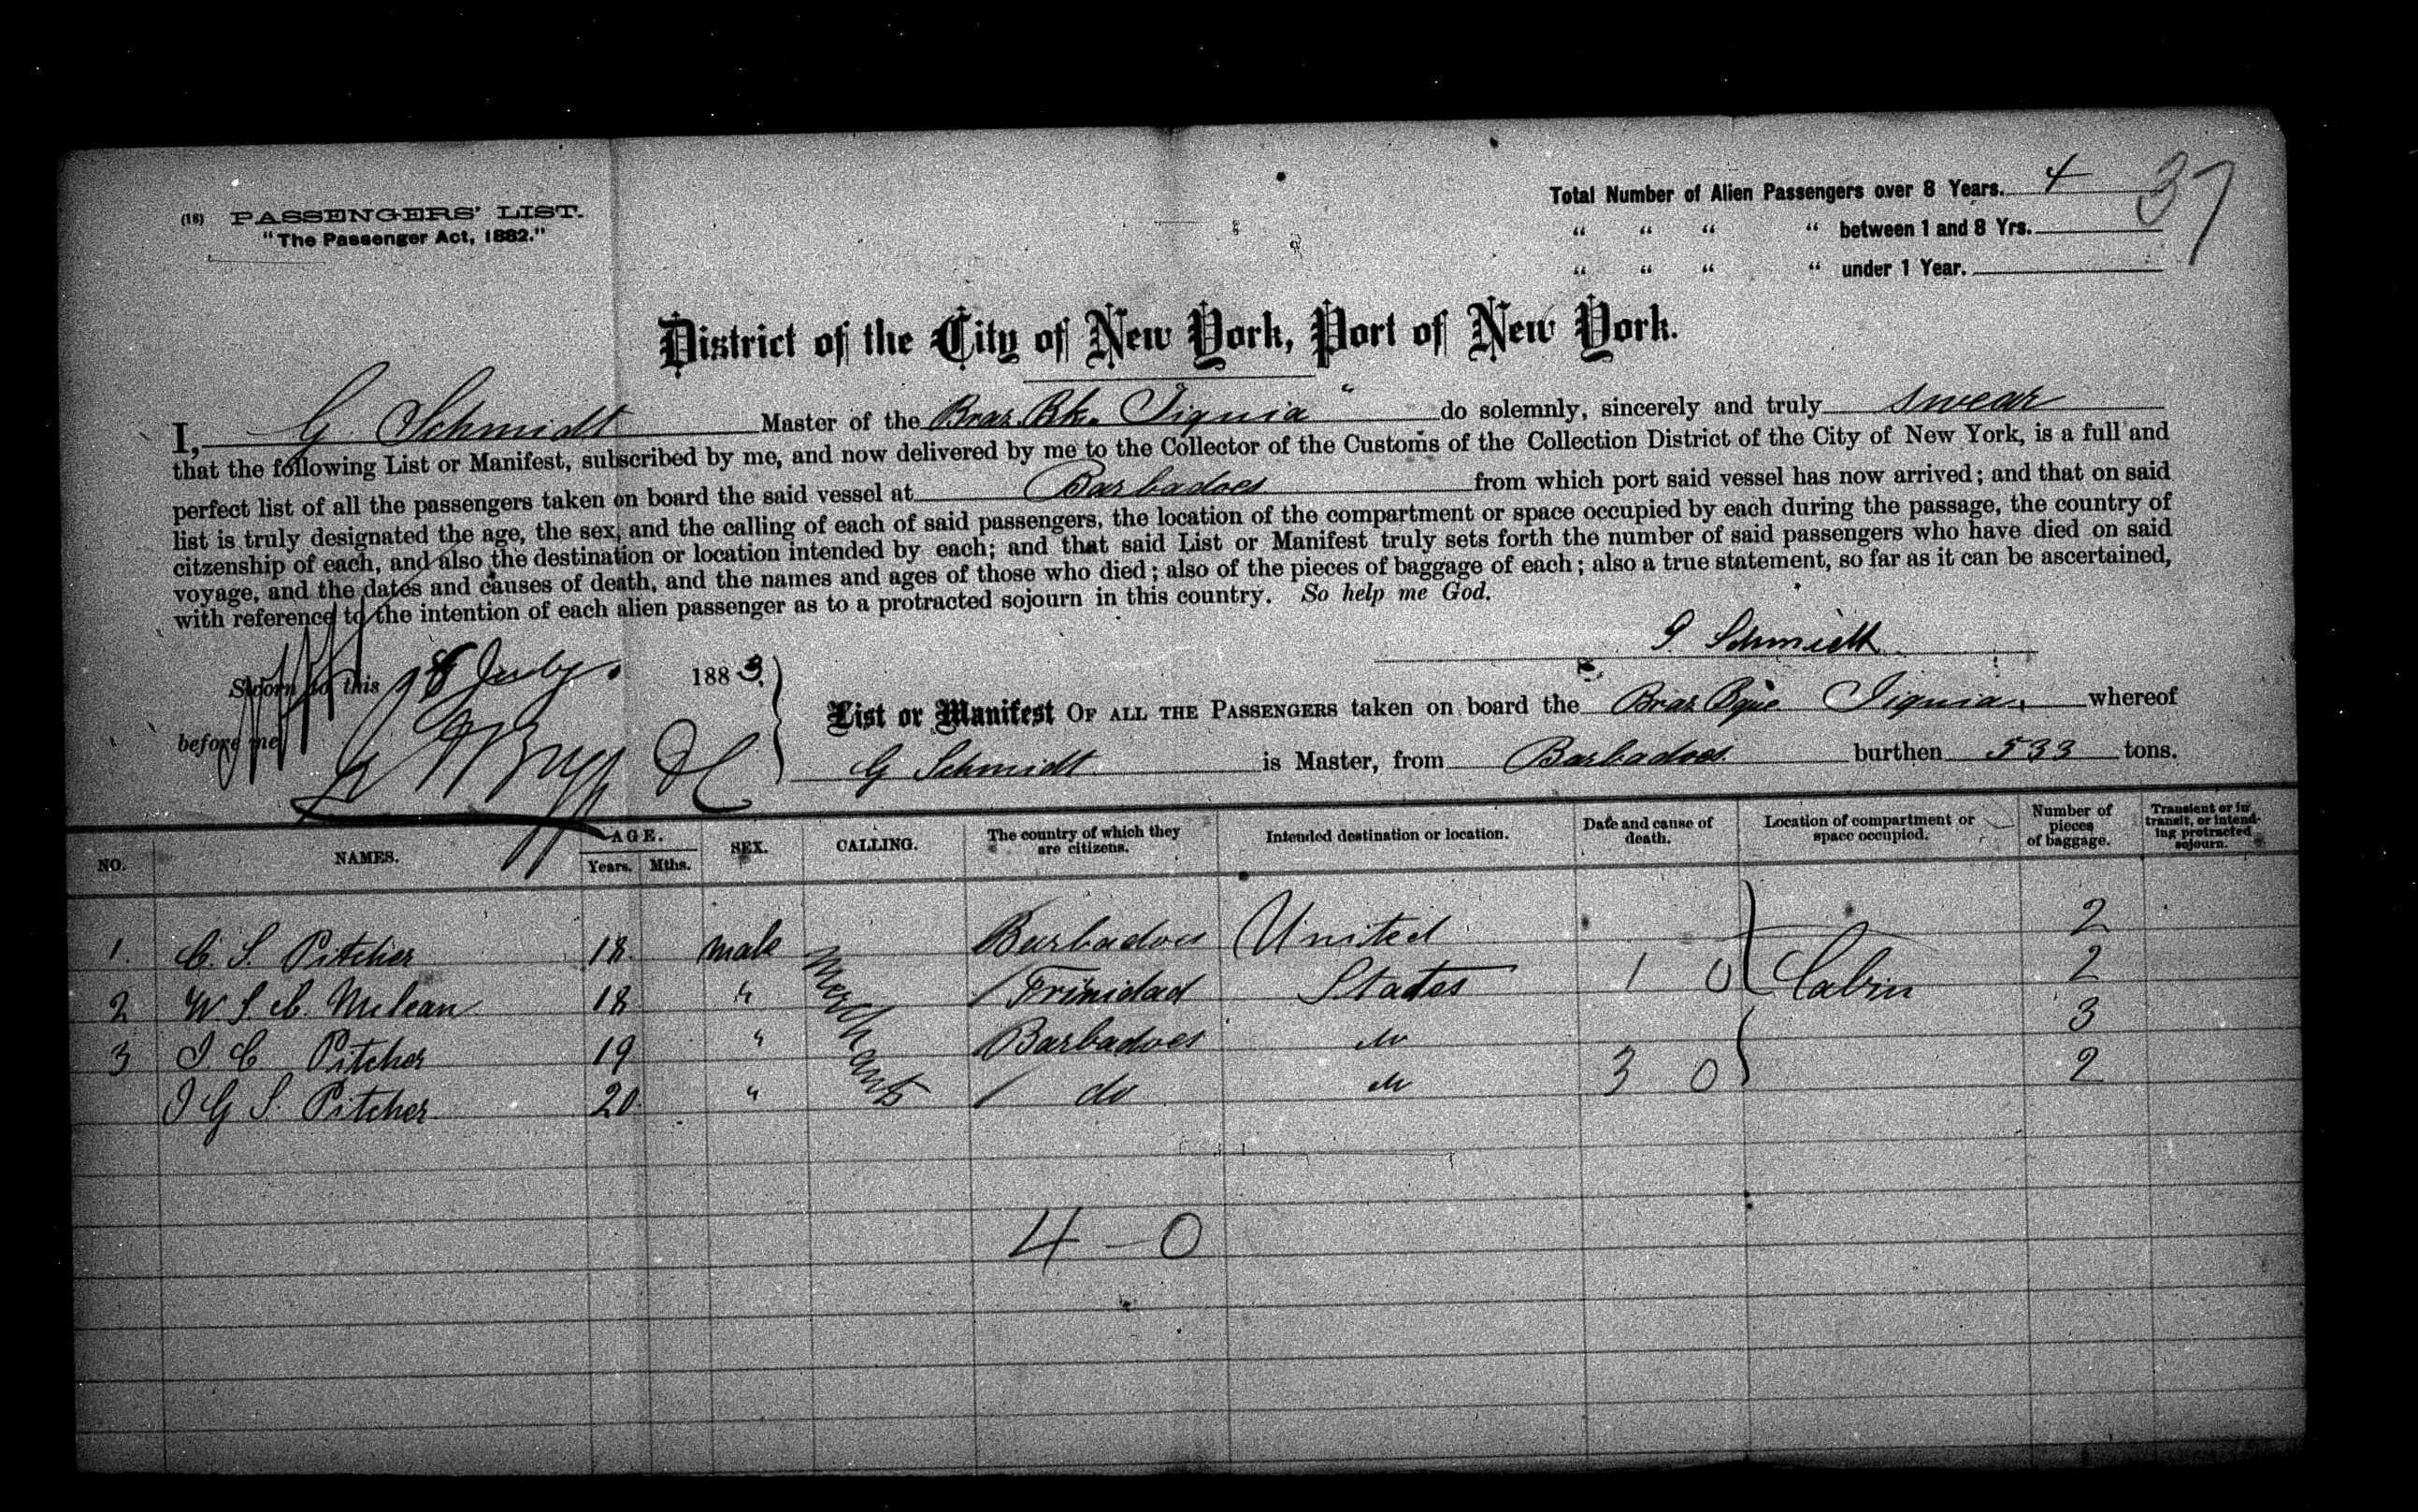 (18) PASSENGERS' LIST.
"The Passenger Act, 1882."
Total Number of Alien Passengers over 8 Years. 4
" " " " between 1 and 8 Yrs.
" " " " under 1 Year.
37
District of the City of New York, Port of New York.
I, G. Schmidt Master of the Braz. Bk. Jiquia" do solemnly, sincerely and truly swear
that the following List or Manifest, subscribed by me, and now delivered by me to the Collector of the Customs of the Collection District of the City of New York, is a full and
perfect list of all the passengers taken on board the said vessel at Barbadoes from which port said vessel has now arrived; and that on said
list is truly designated the age, the sex, and the calling of each of said passengers, the location of the compartment or space occupied by each during the passage, the country of
citzenship of each, and also the destination or location intended by each; and that said List or Manifest truly sets forth the number of said passengers who have died on said
voyage, and the dates and causes of death, and the names and ages of those who died; also of the pieces of baggage of each; also a true statement, so far as it can be ascertained,
with reference to the intention of each alien passenger as to a protracted sojourn in this country. So help me God.
G. Schmidt
Sworn to this 18 July 1883.
before me
List or Manifest OF ALL THE PASSENGERS taken on board the Braz Bque Jiquia, whereof
G Schmidt is Master, from Barbadoes burthen 533 tons.
NO. NAMES. AGE. Years. Mths. SEX. CALLING. The country of which they are citizens. Intended destination or location. Date and cause of death. Location of compartment or space occupied. Number of pieces of baggage. Transient or in transit, or intending protracted sojourn.
1. C. S. Pitcher 18 male Merchants Barbadoes United 2
2 W S C. McLean 18 " / Trinidad States 1 0 Cabin 2
3 J. C Pitcher 19 " Barbadoes do 3
J G S. Pitcher 20 " / do do 3 0 2
4 - 0